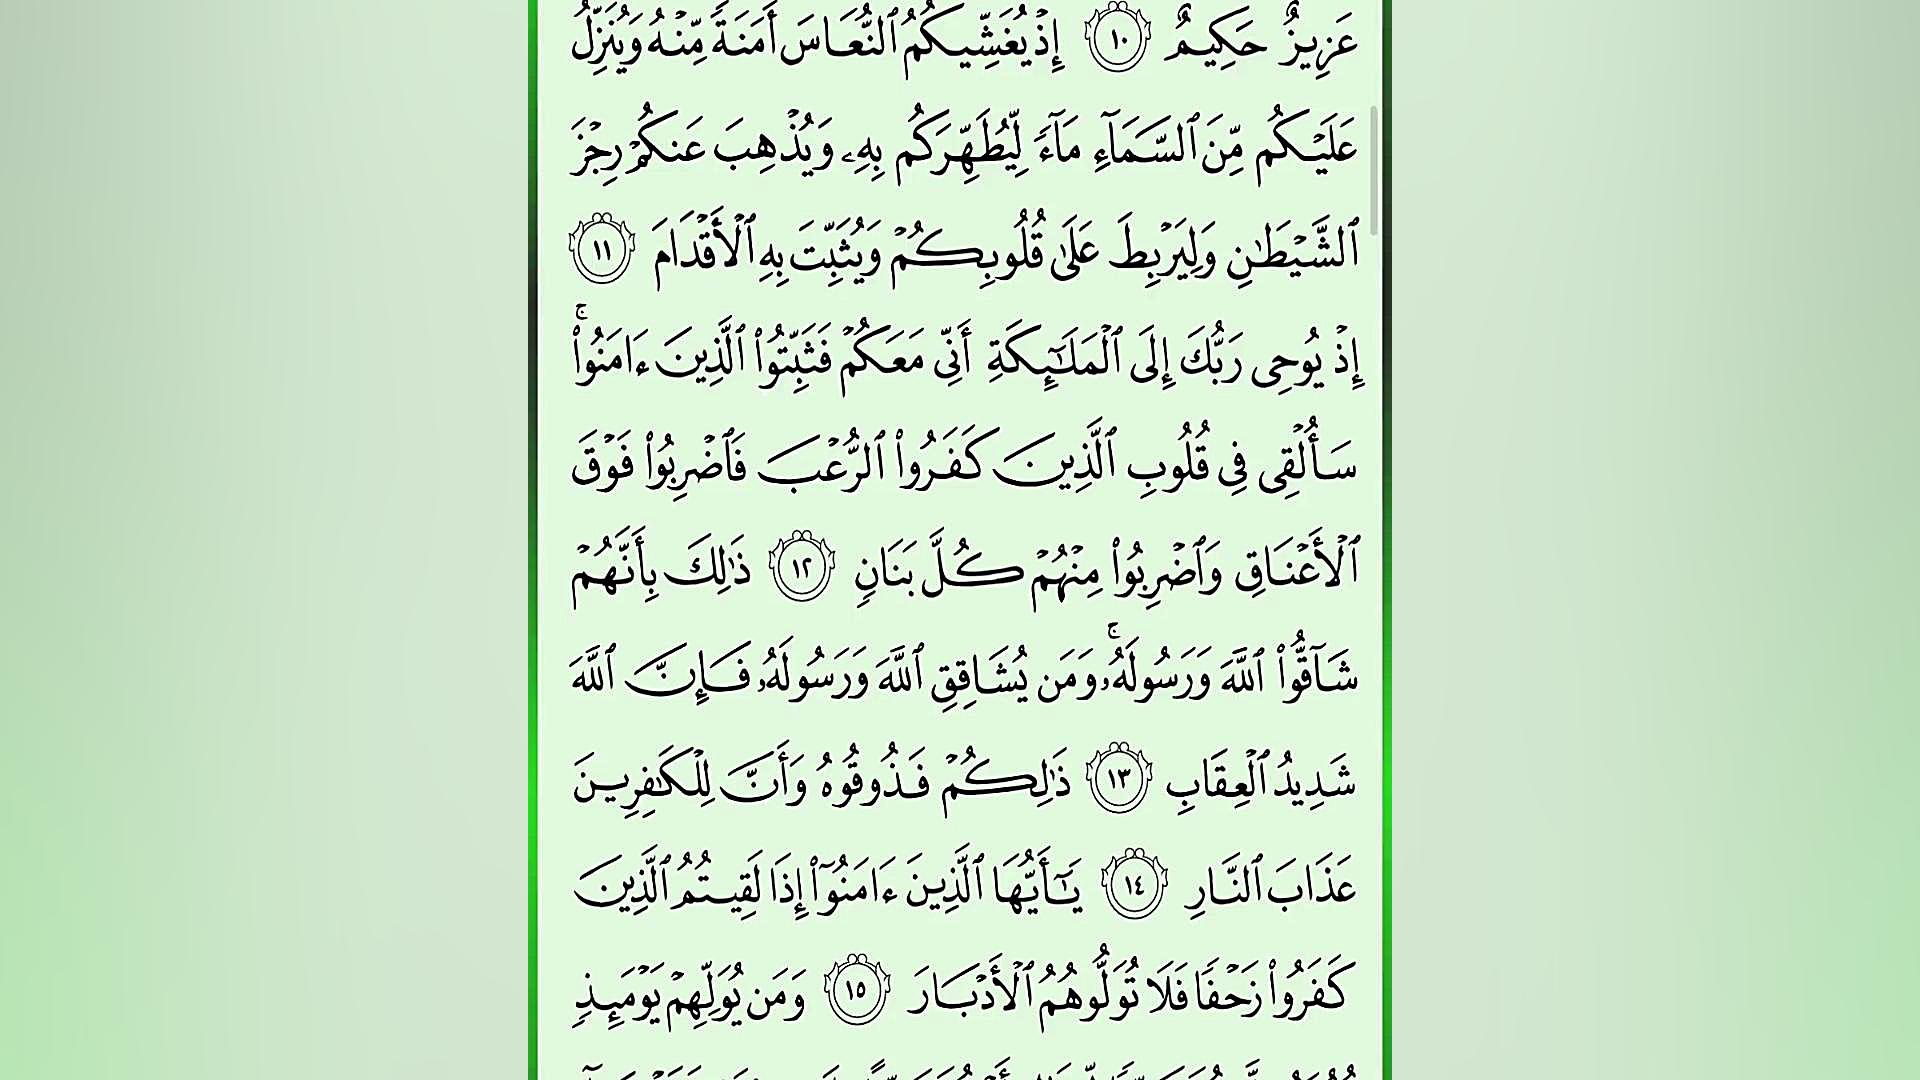 عَزِيزٌ حَكِيمٌ ١٠ إِذْ يُغَشِّيكُمُ ٱلنُّعَاسَ أَمَنَةً مِّنْهُ وَيُنَزِّلُ
عَلَيْكُم مِّنَ ٱلسَّمَآءِ مَآءً لِّيُطَهِّرَكُم بِهِۦ وَيُذْهِبَ عَنكُمْ رِجْزَ
ٱلشَّيْطَـٰنِ وَلِيَرْبِطَ عَلَىٰ قُلُوبِكُمْ وَيُثَبِّتَ بِهِ ٱلْأَقْدَامَ ١١
إِذْ يُوحِى رَبُّكَ إِلَى ٱلْمَلَـٰٓئِكَةِ أَنِّى مَعَكُمْ فَثَبِّتُوا۟ ٱلَّذِينَ ءَامَنُوا۟ۚ
سَأُلْقِى فِى قُلُوبِ ٱلَّذِينَ كَفَرُوا۟ ٱلرُّعْبَ فَٱضْرِبُوا۟ فَوْقَ
ٱلْأَعْنَاقِ وَٱضْرِبُوا۟ مِنْهُمْ كُلَّ بَنَانٍ ١٢ ذَٰلِكَ بِأَنَّهُمْ
شَآقُّوا۟ ٱللَّهَ وَرَسُولَهُۥۚ وَمَن يُشَاقِقِ ٱللَّهَ وَرَسُولَهُۥ فَإِنَّ ٱللَّهَ
شَدِيدُ ٱلْعِقَابِ ١٣ ذَٰلِكُمْ فَذُوقُوهُ وَأَنَّ لِلْكَـٰفِرِينَ
عَذَابَ ٱلنَّارِ ١٤ يَـٰٓأَيُّهَا ٱلَّذِينَ ءَامَنُوٓا۟ إِذَا لَقِيتُمُ ٱلَّذِينَ
كَفَرُوا۟ زَحْفًا فَلَا تُوَلُّوهُمُ ٱلْأَدْبَارَ ١٥ وَمَن يُوَلِّهِمْ يَوْمَئِذٍ